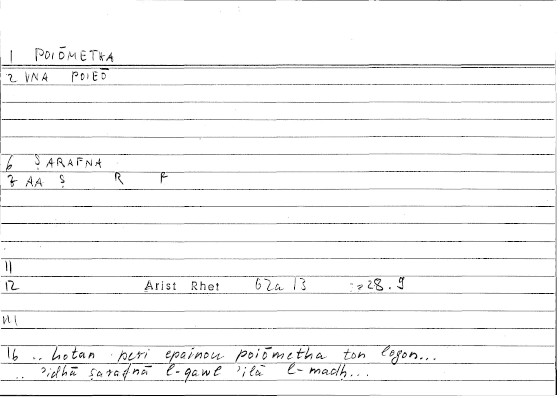 1 POIŌMETHA
2 VNA POIEŌ
6 ṢARAFNA
7 AA Ṣ R F
11
12 Arist Rhet 62a 13 28.9
16 .. hotan peri epainou poiōmetha ton logon...
.. ʾidhā ṣarafnā l-qawl ʾilā l-madḥ...